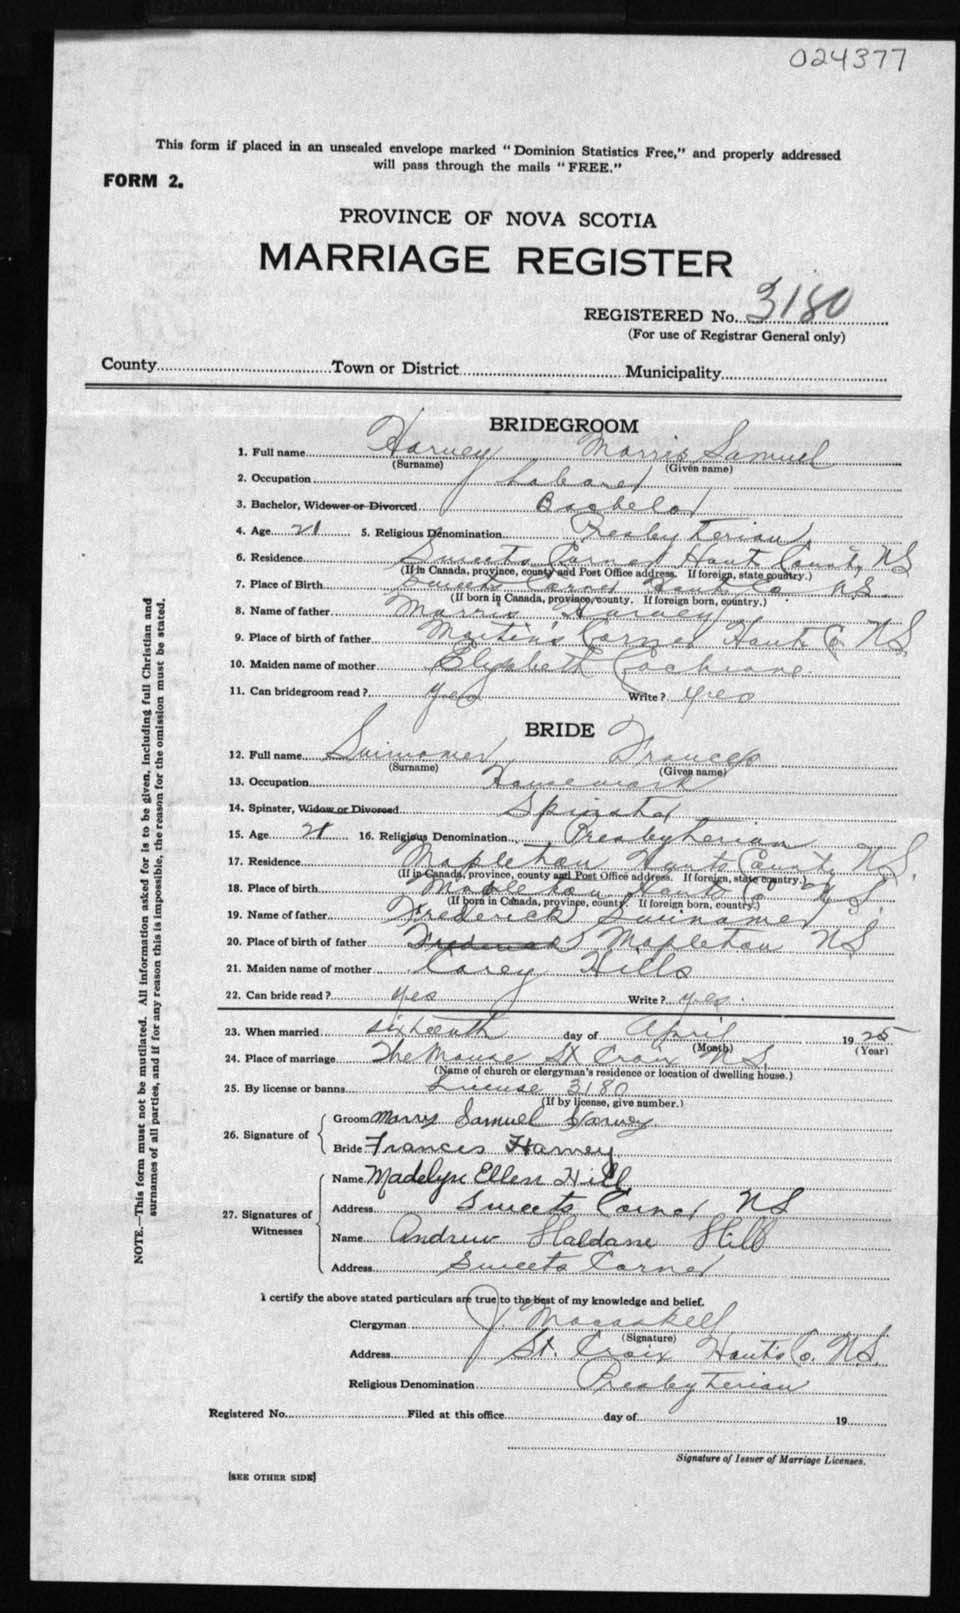 024377
This form if placed in an unsealed envelope marked "Dominion Statistics Free," and properly addressed
will pass through the mails "FREE."
FORM 2.
PROVINCE OF NOVA SCOTIA
MARRIAGE REGISTER
REGISTERED No. 3180
(For use of Registrar General only)
County Town or District Municipality
BRIDEGROOM
1. Full name Harvey Morris Samuel
(Surname) (Given name)
2. Occupation Laborer
3. Bachelor, Widower or Divorced Bachelor
4. Age 21 5. Religious Denomination Presbyterian
6. Residence Sweets Corner Hants County, NS
(If in Canada, province, county and Post Office address. If foreign, state country.)
7. Place of Birth Sweets Corner Hants Co NS.
(If born in Canada, province, county. If foreign born, country.)
8. Name of father Morris Harvey
9. Place of birth of father Martin's Corner Hants Co NS.
10. Maiden name of mother Elizabeth Cochrane
11. Can bridegroom read? yes Write? yes
BRIDE
12. Full name Swinamer Frances
(Surname) (Given name)
13. Occupation Housework
14. Spinster, Widow or Divorced Spinster
15. Age 21 16. Religious Denomination Presbyterian
17. Residence Mapleton Hants County N.S.
(If in Canada, province, county and Post Office address. If foreign, state country.)
18. Place of birth Mapleton Hants Co N S.
(If born in Canada, province, county. If foreign born, country.)
19. Name of father Frederick Swinamer
20. Place of birth of father Mapleton NS
21. Maiden name of mother Corey Hills
22. Can bride read? yes Write? yes.
23. When married sixteenth day of April 1925
(Month) (Year)
24. Place of marriage The Manse St Croix N.S.
(Name of church or clergyman's residence or location of dwelling house.)
25. By license or banns License 3180
(If by license, give number.)
26. Signature of Groom Morris Samuel Harvey
Bride Francis Harvey
27. Signatures of Witnesses Name Madelyn Ellen Hill
Address Sweets Corner NS
Name Andrew Haldane Hill
Address Sweets Corner
I certify the above stated particulars are true to the best of my knowledge and belief.
Clergyman J Macaskell
(Signature)
Address St. Croix Hants Co. N.S.
Religious Denomination Presbyterian
Registered No. Filed at this office day of 19
Signature of Issuer of Marriage Licenses.
[SEE OTHER SIDE]
NOTE.—This form must not be mutilated. All information asked for is to be given, including full Christian and
surnames of all parties, and if for any reason this is impossible, the reason for the omission must be stated.